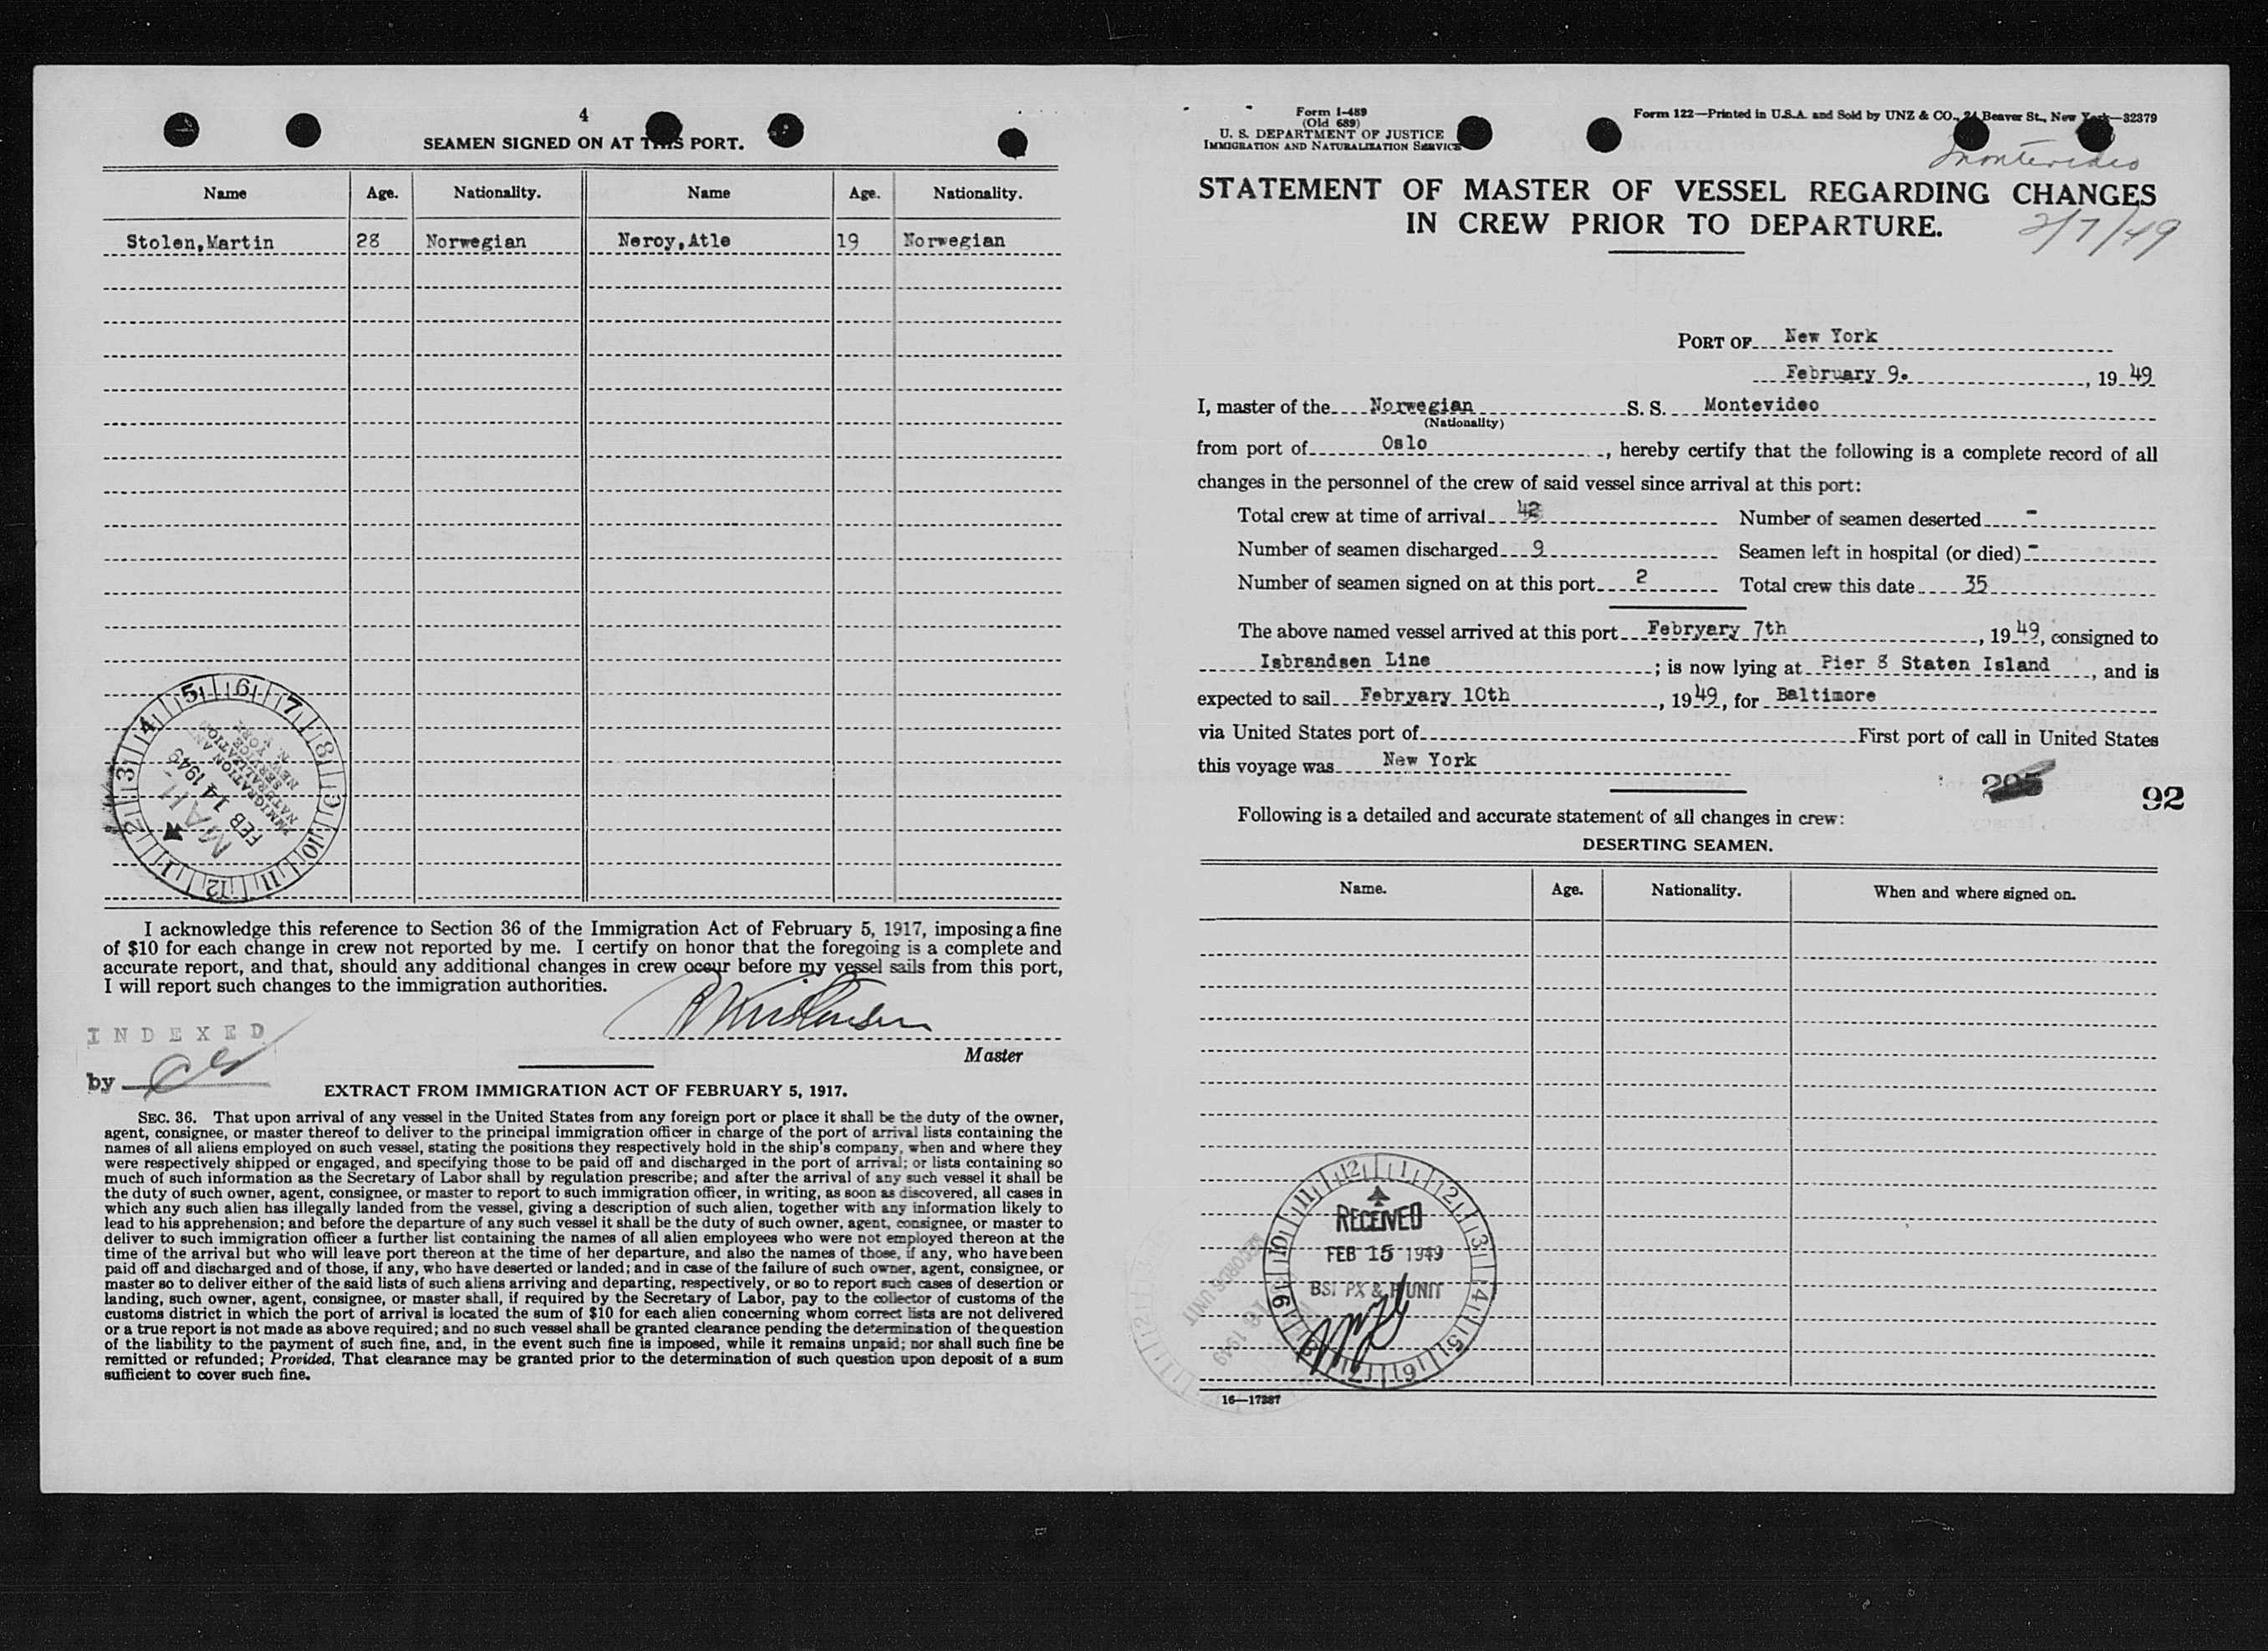 4
SEAMEN SIGNED ON AT THIS PORT.
Name Age. Nationality. Name Age. Nationality.
Stolen,Martin 28 Norwegian Neroy,Atle 19 Norwegian
5 6 7 8 9 10 11 12 1 2 3 4
IMMIGRATION AND
NATURALIZATION
SERVICE
NEW YORK, N.
FEB 14 1949
MAIL
I acknowledge this reference to Section 36 of the Immigration Act of February 5, 1917, imposing a fine
of $10 for each change in crew not reported by me. I certify on honor that the foregoing is a complete and
accurate report, and that, should any additional changes in crew occur before my vessel sails from this port,
I will report such changes to the immigration authorities.
Master
INDEXED
by
EXTRACT FROM IMMIGRATION ACT OF FEBRUARY 5, 1917.
SEC. 36. That upon arrival of any vessel in the United States from any foreign port or place it shall be the duty of the owner,
agent, consignee, or master thereof to deliver to the principal immigration officer in charge of the port of arrival lists containing the
names of all aliens employed on such vessel, stating the positions they respectively hold in the ship's company, when and where they
were respectively shipped or engaged, and specifying those to be paid off and discharged in the port of arrival; or lists containing so
much of such information as the Secretary of Labor shall by regulation prescribe; and after the arrival of any such vessel it shall be
the duty of such owner, agent, consignee, or master to report to such immigration officer, in writing, as soon as discovered, all cases in
which any such alien has illegally landed from the vessel, giving a description of such alien, together with any information likely to
lead to his apprehension; and before the departure of any such vessel it shall be the duty of such owner, agent, consignee, or master to
deliver to such immigration officer a further list containing the names of all alien employees who were not employed thereon at the
time of the arrival but who will leave port thereon at the time of her departure, and also the names of those, if any, who have been
paid off and discharged and of those, if any, who have deserted or landed; and in case of the failure of such owner, agent, consignee, or
master so to deliver either of the said lists of such aliens arriving and departing, respectively, or so to report such cases of desertion or
landing, such owner, agent, consignee, or master shall, if required by the Secretary of Labor, pay to the collector of customs of the
customs district in which the port of arrival is located the sum of $10 for each alien concerning whom correct lists are not delivered
or a true report is not made as above required; and no such vessel shall be granted clearance pending the determination of the question
of the liability to the payment of such fine, and, in the event such fine is imposed, while it remains unpaid; nor shall such fine be
remitted or refunded; Provided, That clearance may be granted prior to the determination of such question upon deposit of a sum
sufficient to cover such fine.
Form I-489
(Old 689)
U. S. DEPARTMENT OF JUSTICE
IMMIGRATION AND NATURALIZATION SERVICE
Form 122—Printed in U.S.A. and Sold by UNZ & CO., 24 Beaver St., New York—32379
Montevideo
STATEMENT OF MASTER OF VESSEL REGARDING CHANGES
IN CREW PRIOR TO DEPARTURE.
2/7/49
PORT OF New York
February 9. , 19 49
I, master of the Norwegian S. S. Montevideo
(Nationality)
from port of Oslo , hereby certify that the following is a complete record of all
changes in the personnel of the crew of said vessel since arrival at this port:
Total crew at time of arrival 42 Number of seamen deserted -
Number of seamen discharged 9 Seamen left in hospital (or died) -
Number of seamen signed on at this port 2 Total crew this date 35
The above named vessel arrived at this port Febryary 7th , 19 49, consigned to
Isbrandsen Line ; is now lying at Pier 8 Staten Island , and is
expected to sail Febryary 10th , 19 49, for Baltimore
via United States port of First port of call in United States
this voyage was New York
92
Following is a detailed and accurate statement of all changes in crew:
DESERTING SEAMEN.
Name. Age. Nationality. When and where signed on.
12 1 2 3 4 5 6 7 8 9 10 11
RECEIVED
FEB 15 1949
BSI PX & H UNIT
16—17287